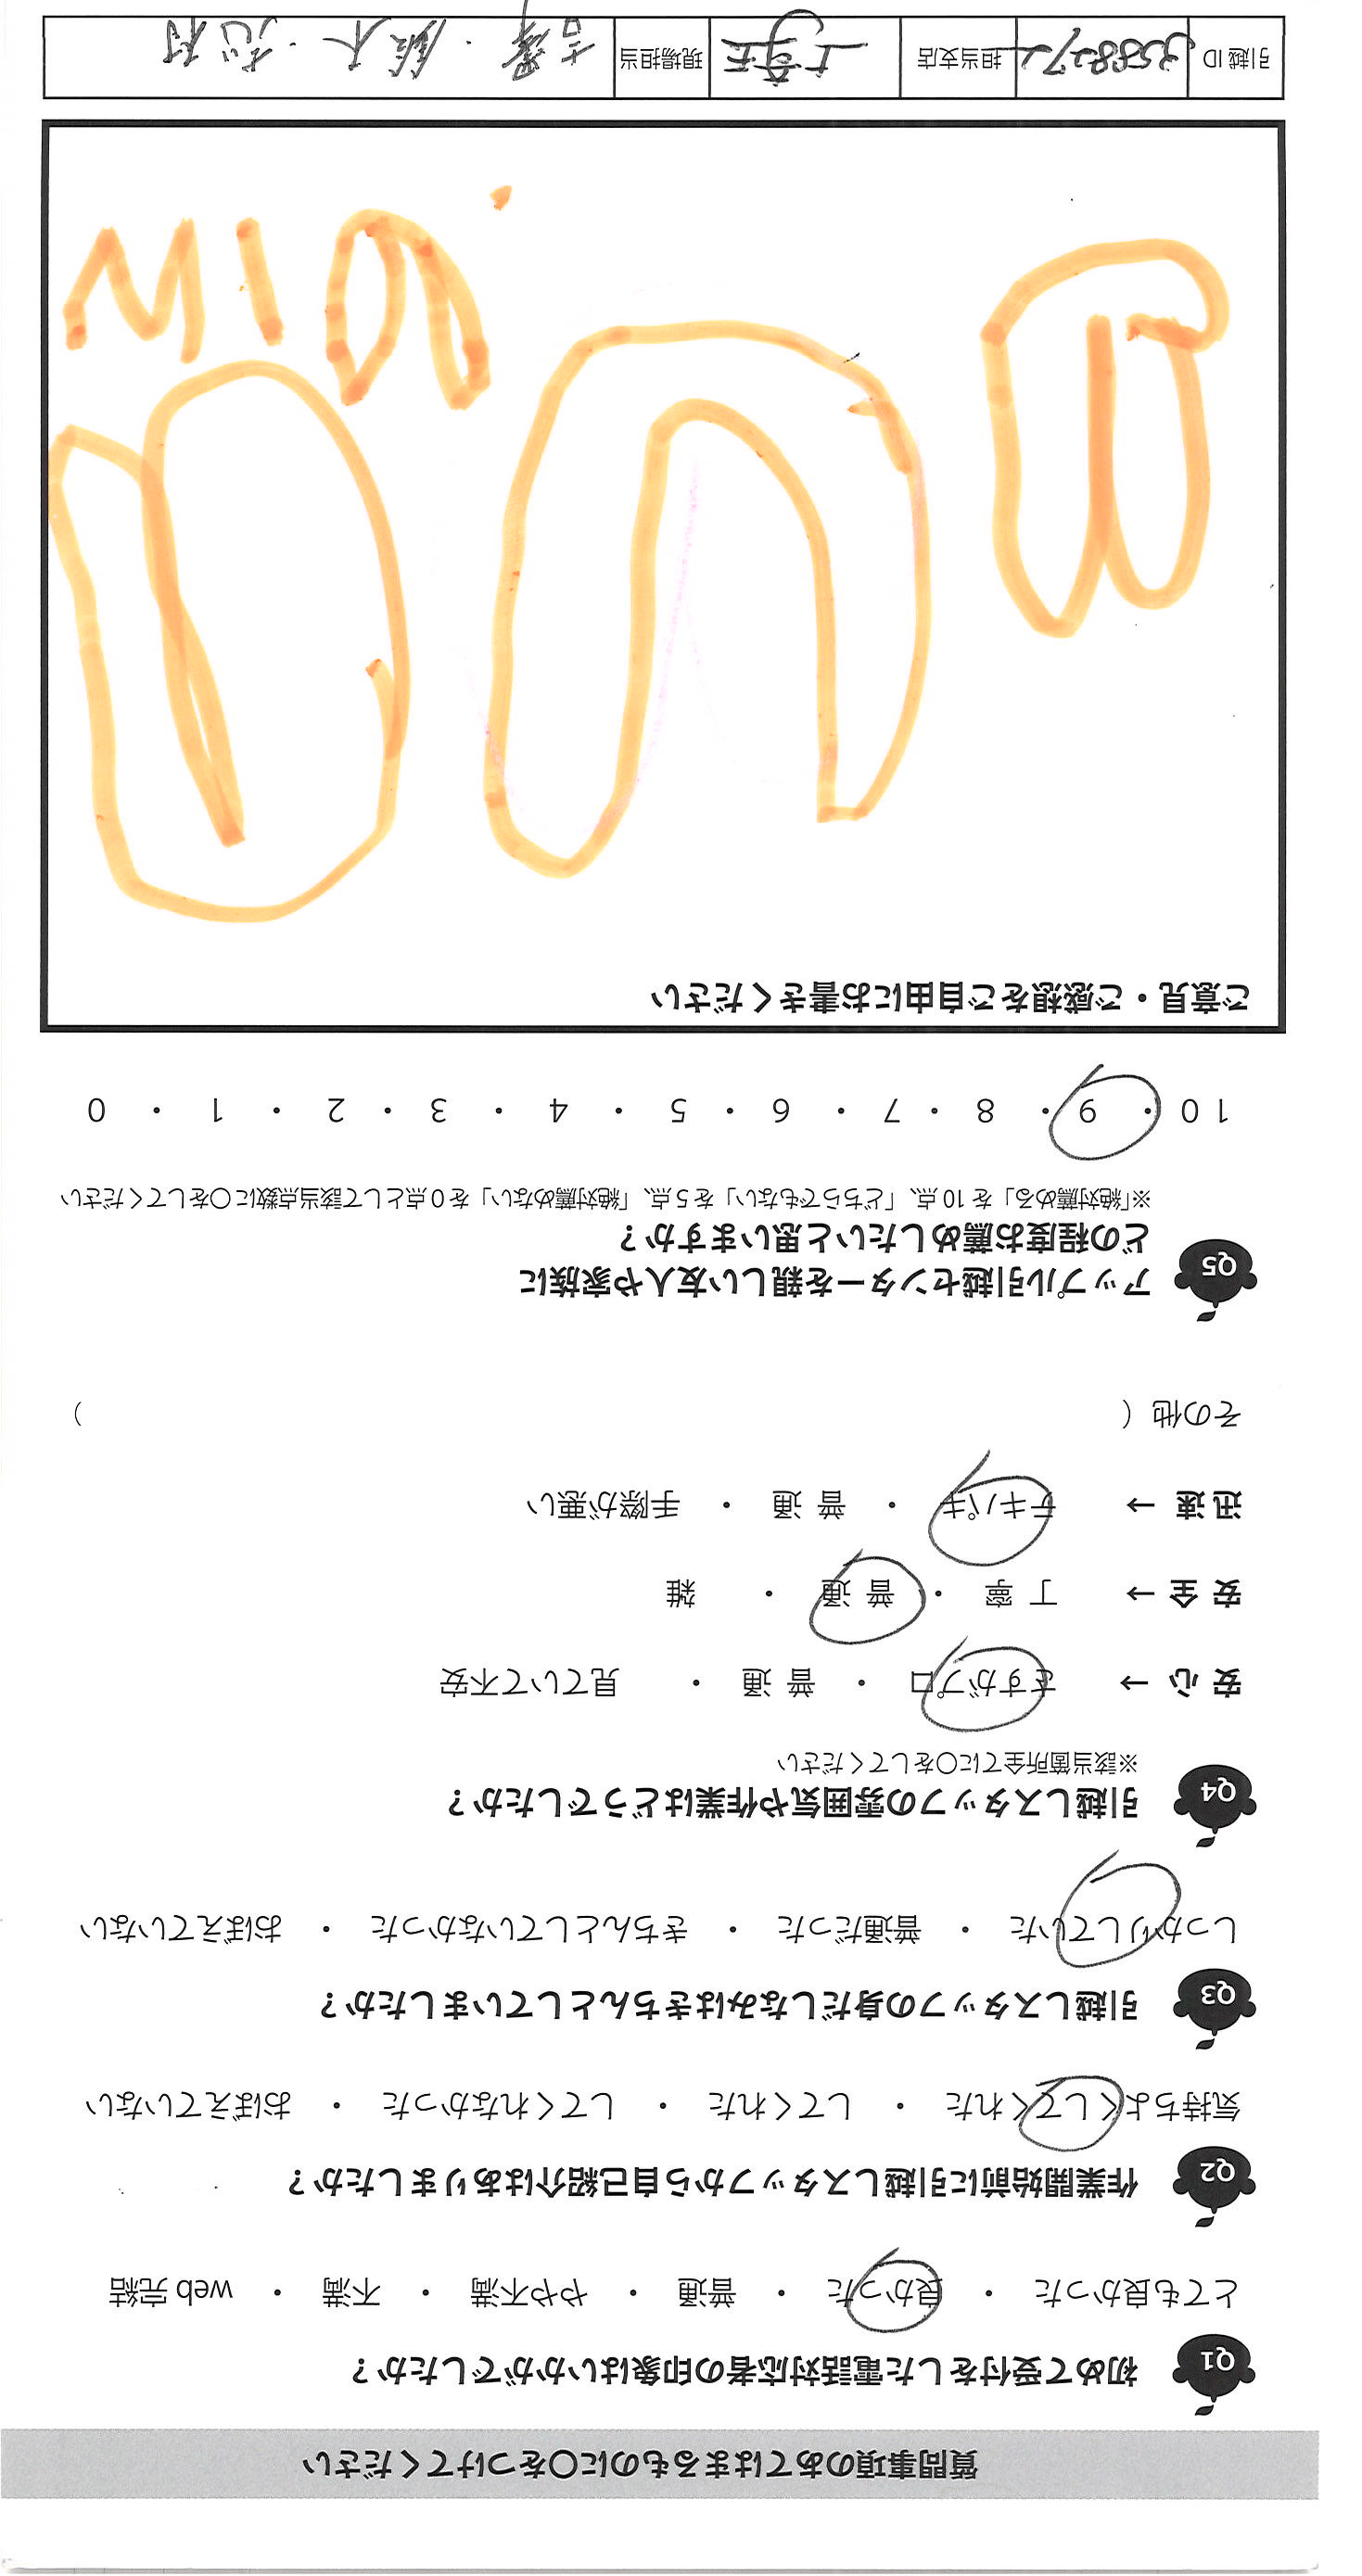 質問事項のあてはまるものに〇をつけてください
Q1 初めて受付をした電話対応者の印象はいかがでしたか?
とても良かった ・ 良かった ・ 普通 ・ やや不満 ・ 不満 ・ web 完結
Q2 作業開始前に引越しスタッフから自己紹介はありましたか?
気持ちよくしてくれた ・ してくれた ・ してくれなかった ・ おぼえていない
Q3 引越しスタッフの身だしなみはきちんとしていましたか?
しっかりしていた ・ 普通だった ・ きちんとしていなかった ・ おぼえていない
Q4 引越しスタッフの雰囲気や作業はどうでしたか?
※該当箇所全てに〇をしてください
安心 → さすがプロ ・ 普通 ・ 見ていて不安
安全 → 丁寧 ・ 普通 ・ 雑
迅速 → テキパキ ・ 普通 ・ 手際が悪い
その他 ( )
Q5 アップル引越センターを親しい友人や家族に
どの程度お薦めしたいと思いますか?
※「絶対薦める」を 10 点、「どちらでもない」を 5 点、「絶対薦めない」を 0 点として該当点数に〇をしてください
10 ・ 9 ・ 8 ・ 7 ・ 6 ・ 5 ・ 4 ・ 3 ・ 2 ・ 1 ・ 0
ご意見・ご感想をご自由にお書きください
引越 ID 担当支店 現場担当 鈴木